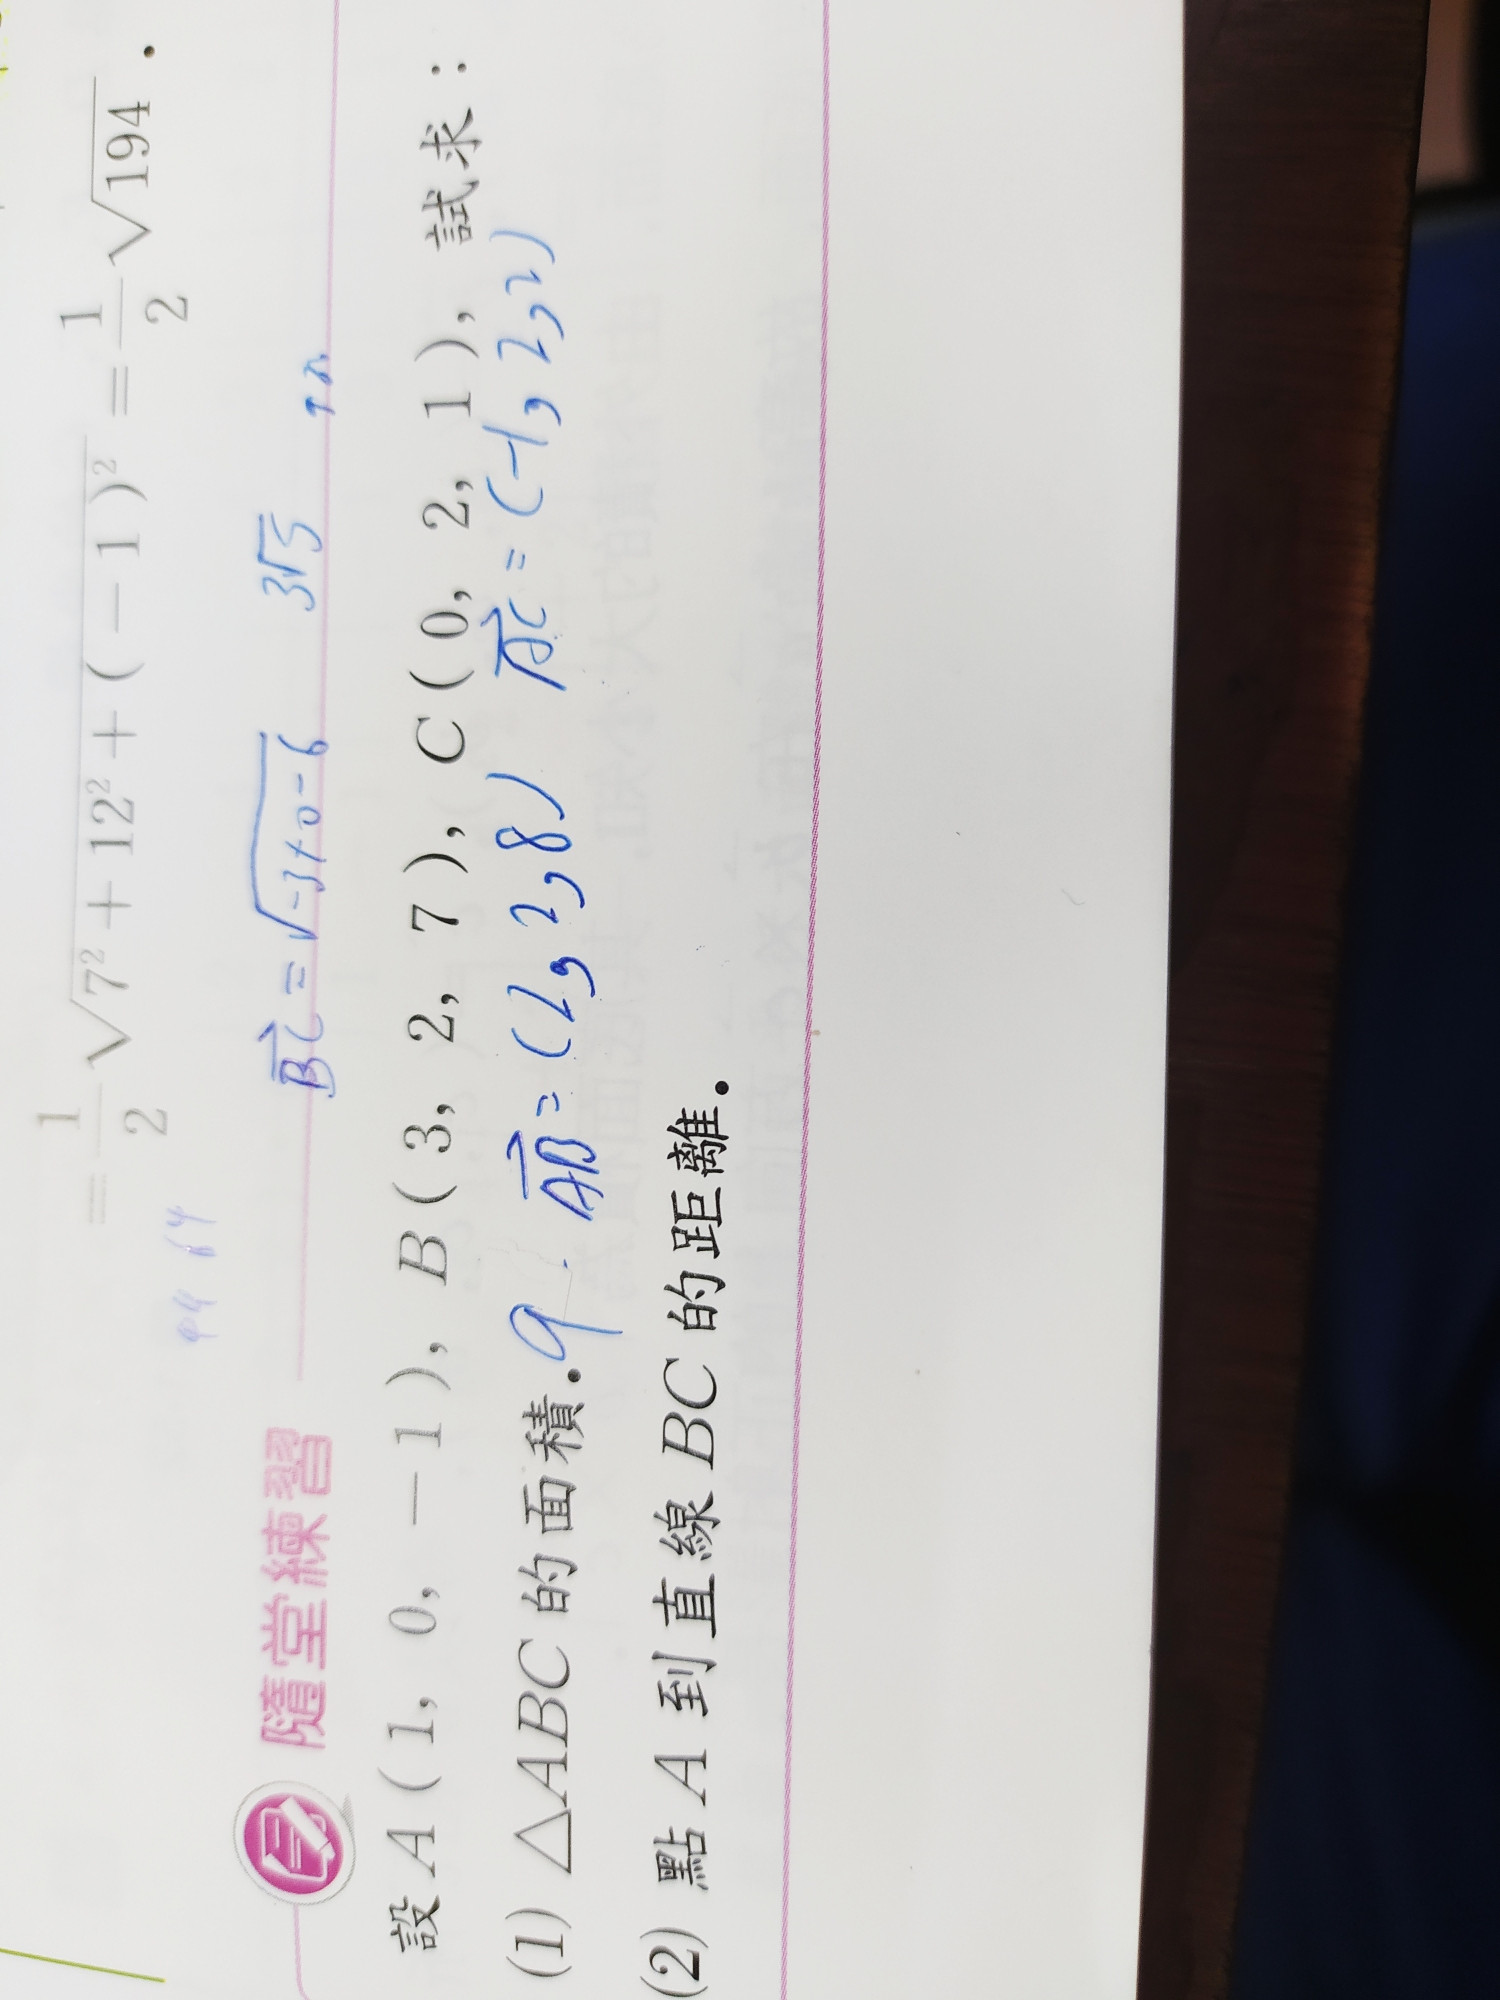 = 1/2 √(7² + 12² + (−1)²) = 1/2 √194 .
44 64
BC = √-3+0-6 3√5
隨堂練習
設 A(1, 0, −1), B(3, 2, 7), C(0, 2, 1), 試求:
(1) △ABC 的面積. 9 AB = (2, 2, 8) AC = (-1, 2, 2)
(2) 點 A 到直線 BC 的距離.